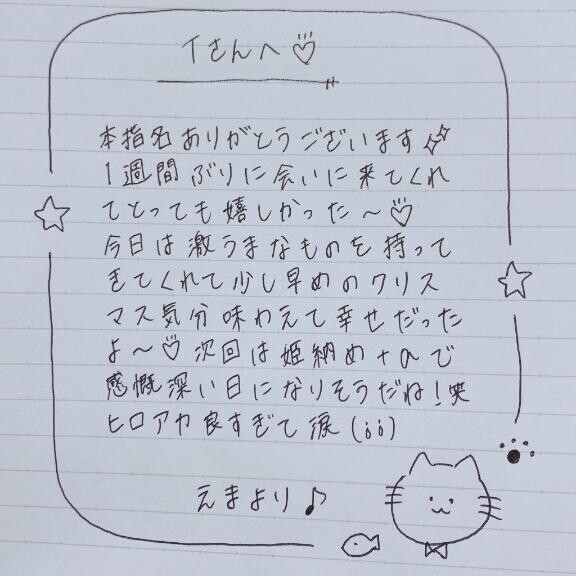 Tさんへ♡
本指名ありがとうございます✨
1週間ぶりに会いに来てくれ
てとっても嬉しかった〜♡
今日は激うまなものを持って
きてくれて少し早めのクリス
マス気分味わえて幸せだった
よ〜♡次回は姫納め+αで
感慨深い日になりそうだね!笑
ヒロアカ良すぎて涙(;;)
えまより♪